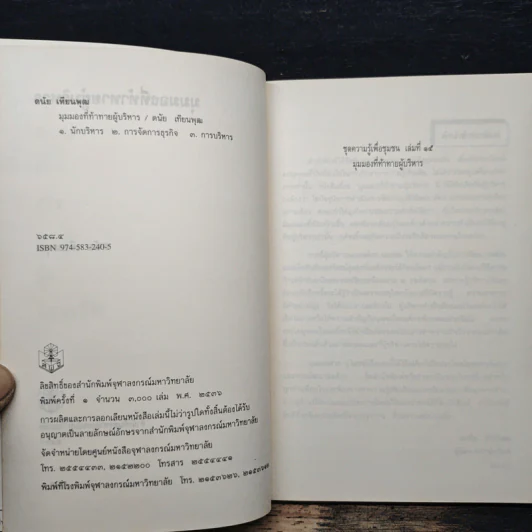 ดนัย เทียนพุฒ
มุมมองที่ท้าทายผู้บริหาร / ดนัย เทียนพุฒ
๑. นักบริหาร ๒. การจัดการธุรกิจ ๓. การบริหาร
๖๕๘.๔
ISBN 974-583-240-5
ลิขสิทธิ์ของสำนักพิมพ์จุฬาลงกรณ์มหาวิทยาลัย
พิมพ์ครั้งที่ ๑ จำนวน ๓,๐๐๐ เล่ม พ.ศ. ๒๕๓๖
การผลิตและการลอกเลียนหนังสือเล่มนี้ไม่ว่ารูปใดทั้งสิ้นต้องได้รับ
อนุญาตเป็นลายลักษณ์อักษรจากสำนักพิมพ์จุฬาลงกรณ์มหาวิทยาลัย
จัดจำหน่ายโดยศูนย์หนังสือจุฬาลงกรณ์มหาวิทยาลัย
โทร. ๒๕๕๔๔๓๓, ๒๑๕๒๒๐๐ โทรสาร ๒๕๕๔๔๔๑
พิมพ์ที่โรงพิมพ์จุฬาลงกรณ์มหาวิทยาลัย โทร. ๒๑๕๓๖๒๖,
ชุดความรู้เพื่อชุมชน เล่มที่ ๑๕
มุมมองที่ท้าทายผู้บริหาร